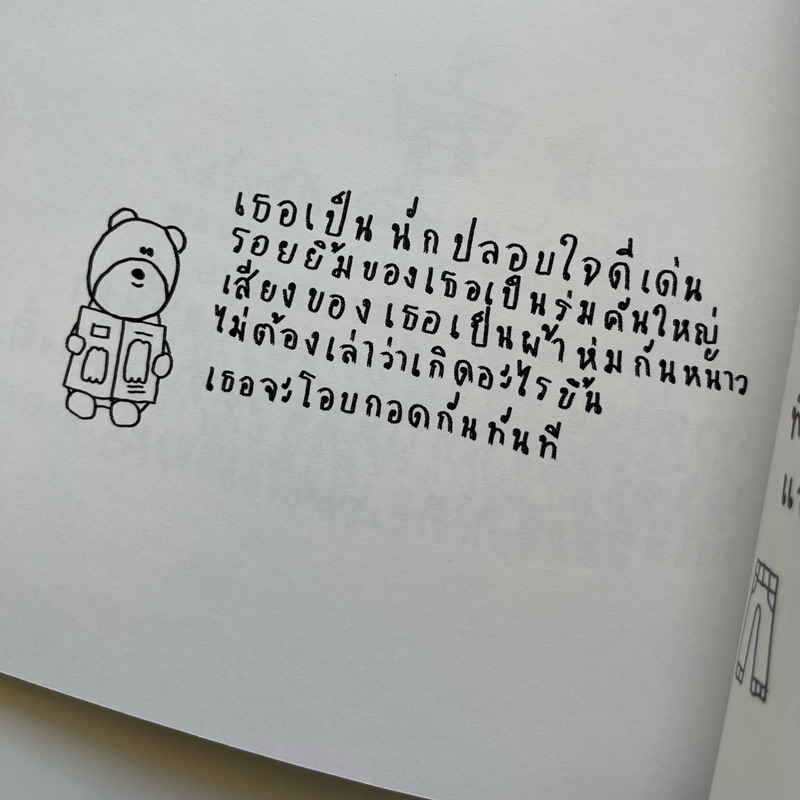 เธอเป็น นักปลอบใจดีเด่น
รอยยิ้มของเธอเป็นร่มคันใหญ่
เสียงของ เธอเป็นผ้าห่มกันหนาว
ไม่ต้องเล่าว่าเกิดอะไรขึ้น
เธอจะโอบกอดกันทันที